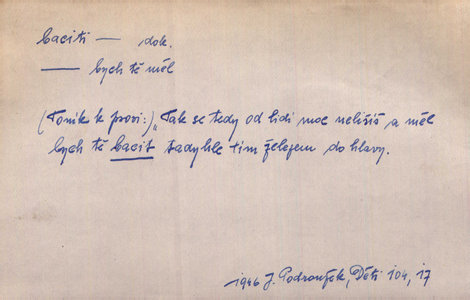 baciti — dok.
— bych tě měl
(Toník k psovi:) „Tak se tedy od lidí moc nelišíš a měl
bych tě bacit tadyhle tím železem do hlavy.
1946 J. Podroužek, Děti 104, 17